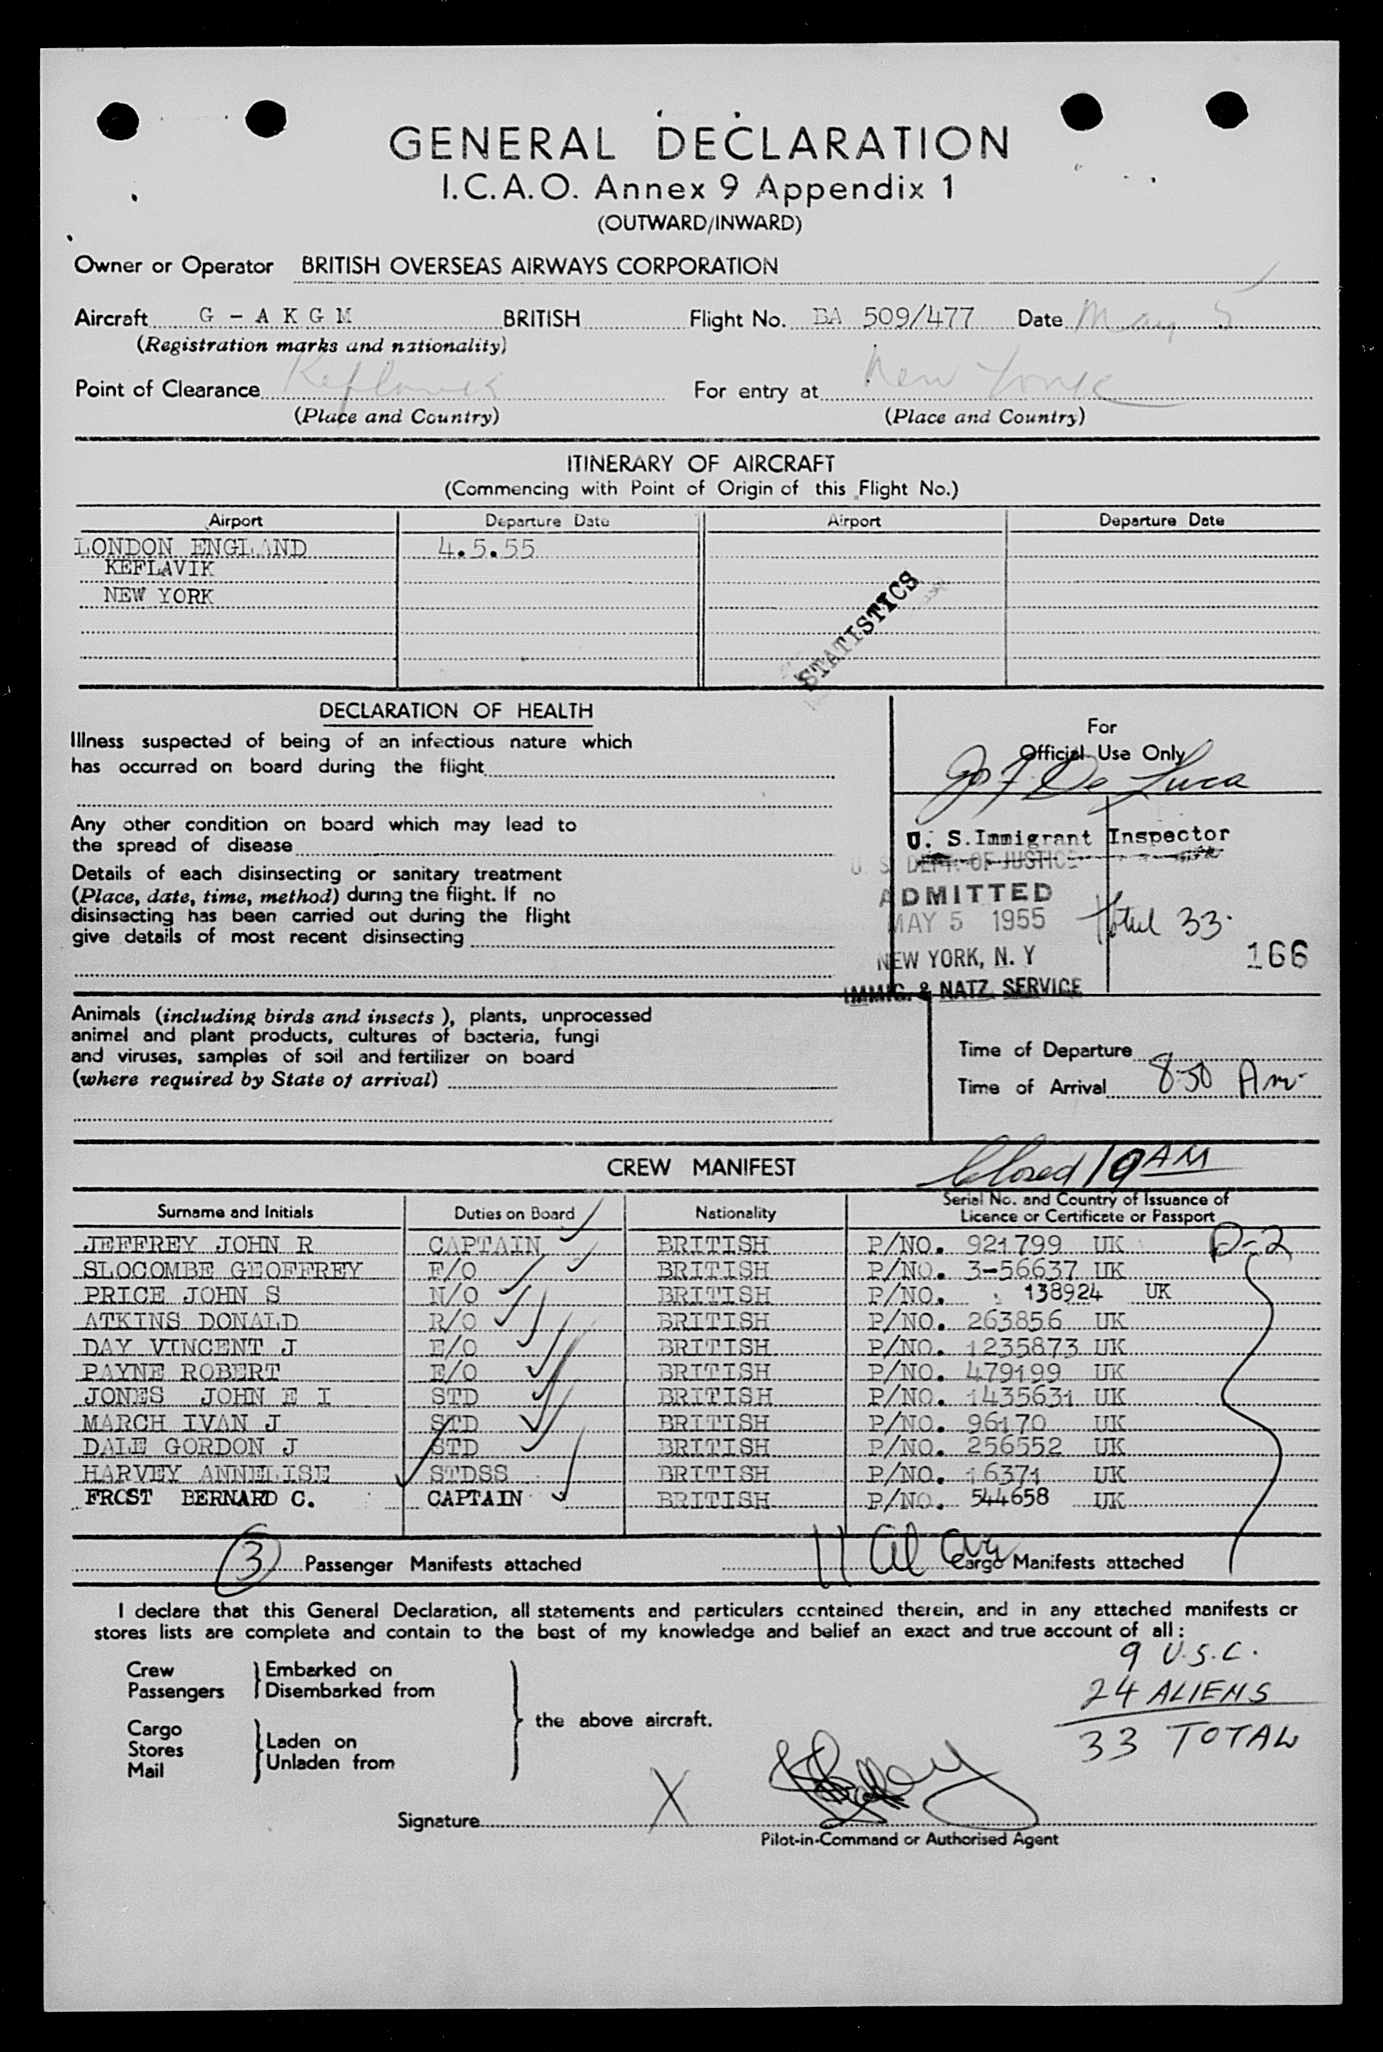 GENERAL DECLARATION
I.C.A.O. Annex 9 Appendix 1
(OUTWARD/INWARD)
Owner or Operator BRITISH OVERSEAS AIRWAYS CORPORATION
Aircraft G - A K G M BRITISH Flight No. BA 509/477 Date May 5
(Registration marks and nationality)
Point of Clearance Keflavik For entry at New York
(Place and Country) (Place and Country)
ITINERARY OF AIRCRAFT
(Commencing with Point of Origin of this Flight No.)
Airport Departure Date Airport Departure Date
LONDON ENGLAND 4.5.55
KEFLAVIK
NEW YORK
STATISTICS
DECLARATION OF HEALTH
Illness suspected of being of an infectious nature which
has occurred on board during the flight
Any other condition on board which may lead to
the spread of disease
Details of each disinsecting or sanitary treatment
(Place, date, time, method) during the flight. If no
disinsecting has been carried out during the flight
give details of most recent disinsecting
For
Official Use Only
Jos F. De Luca
U. S. Immigrant Inspector
U. S. DEPT. OF JUSTICE
ADMITTED
MAY 5 1955
Total 33.
NEW YORK, N. Y
166
IMMIG. & NATZ. SERVICE
Animals (including birds and insects), plants, unprocessed
animal and plant products, cultures of bacteria, fungi
and viruses, samples of soil and fertilizer on board
(where required by State of arrival)
Time of Departure
Time of Arrival 8-50 Am-
CREW MANIFEST
Closed 19 AM
Surname and Initials Duties on Board Nationality Serial No. and Country of Issuance of
Licence or Certificate or Passport
JEFFREY JOHN R CAPTAIN BRITISH P/NO. 921799 UK D-2
SLOCOMBE GEOFFREY F/O BRITISH P/NO. 3-56637 UK
PRICE JOHN S N/O BRITISH P/NO. 138924 UK
ATKINS DONALD R/O BRITISH P/NO. 263856 UK
DAY VINCENT J E/O BRITISH P/NO. 1235873 UK
PAYNE ROBERT E/O BRITISH P/NO. 479199 UK
JONES JOHN E I STD BRITISH P/NO. 1435631 UK
MARCH IVAN J STD BRITISH P/NO. 96170 UK
DALE GORDON J STD BRITISH P/NO. 256552 UK
HARVEY ANNELISE STDSS BRITISH P/NO. 16371 UK
FROST BERNARD C. CAPTAIN BRITISH P/NO. 544658 UK
3 Passenger Manifests attached 11 Cargo Manifests attached
I declare that this General Declaration, all statements and particulars contained therein, and in any attached manifests or
stores lists are complete and contain to the best of my knowledge and belief an exact and true account of all:
9 U.S.C.
24 ALIENS
33 TOTAL
Crew
Passengers
Embarked on
Disembarked from
Cargo
Stores
Mail
Laden on
Unladen from
the above aircraft.
Signature X
Pilot-in-Command or Authorised Agent